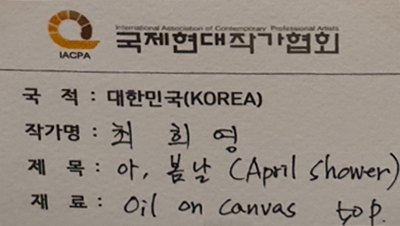 International Association of Contemporary Professional Artists
국제현대작가협회
IACPA
국 적 : 대한민국(KOREA)
작가명 : 최 희 영
제 목 : 아, 봄날 (April shower)
재 료 : Oil on canvas top.